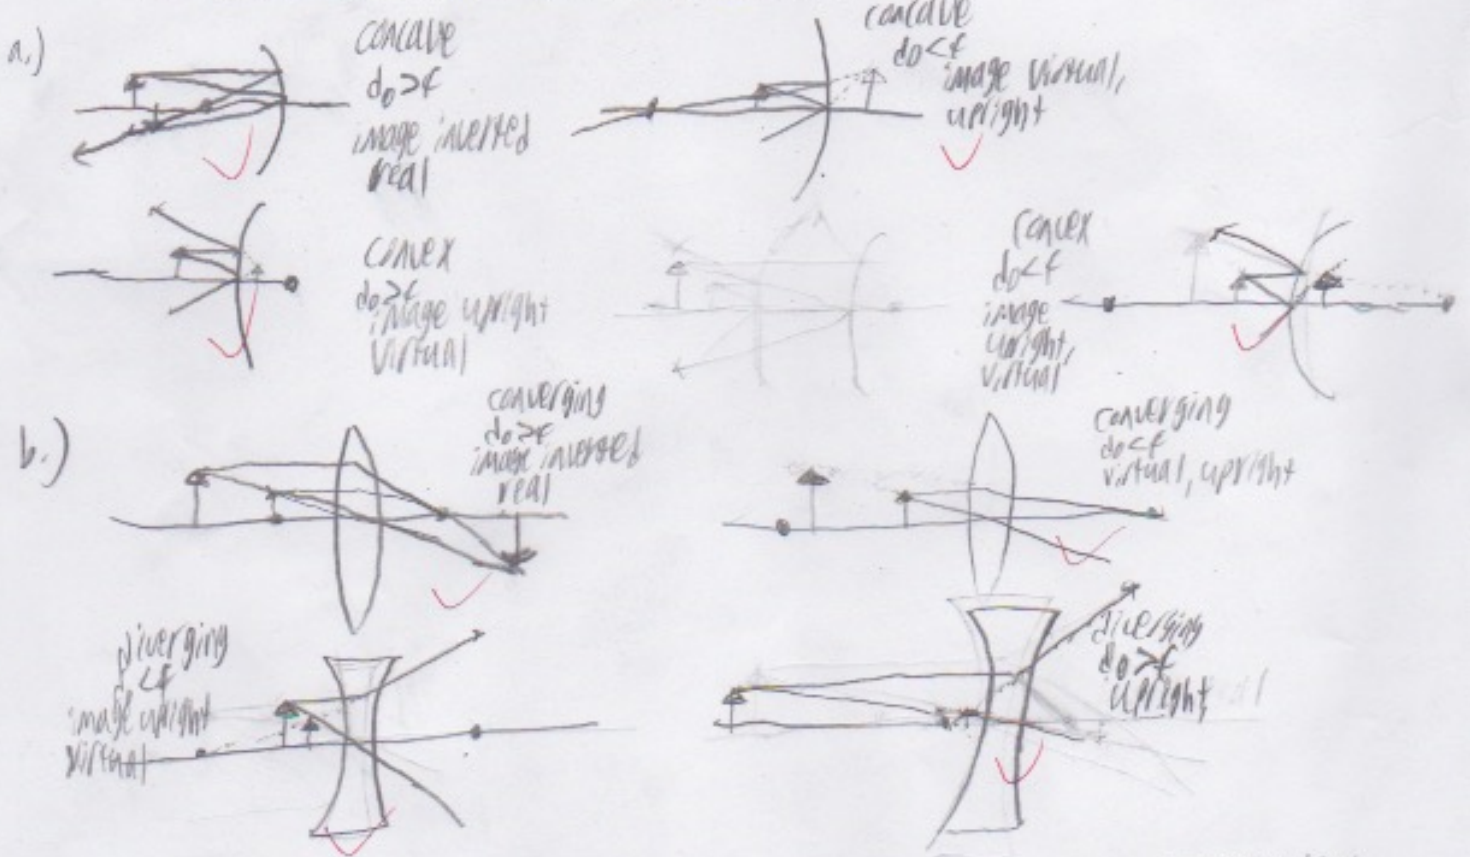 a.)
concave
do>f
image inverted
real
concave
do<f
image virtual,
upright
convex
do>f
image upright
virtual
convex
do<f
image
upright,
virtual
b.)
converging
do>f
image inverted
real
converging
do<f
virtual, upright
diverging
<f
image upright
virtual
diverging
do>f
upright,